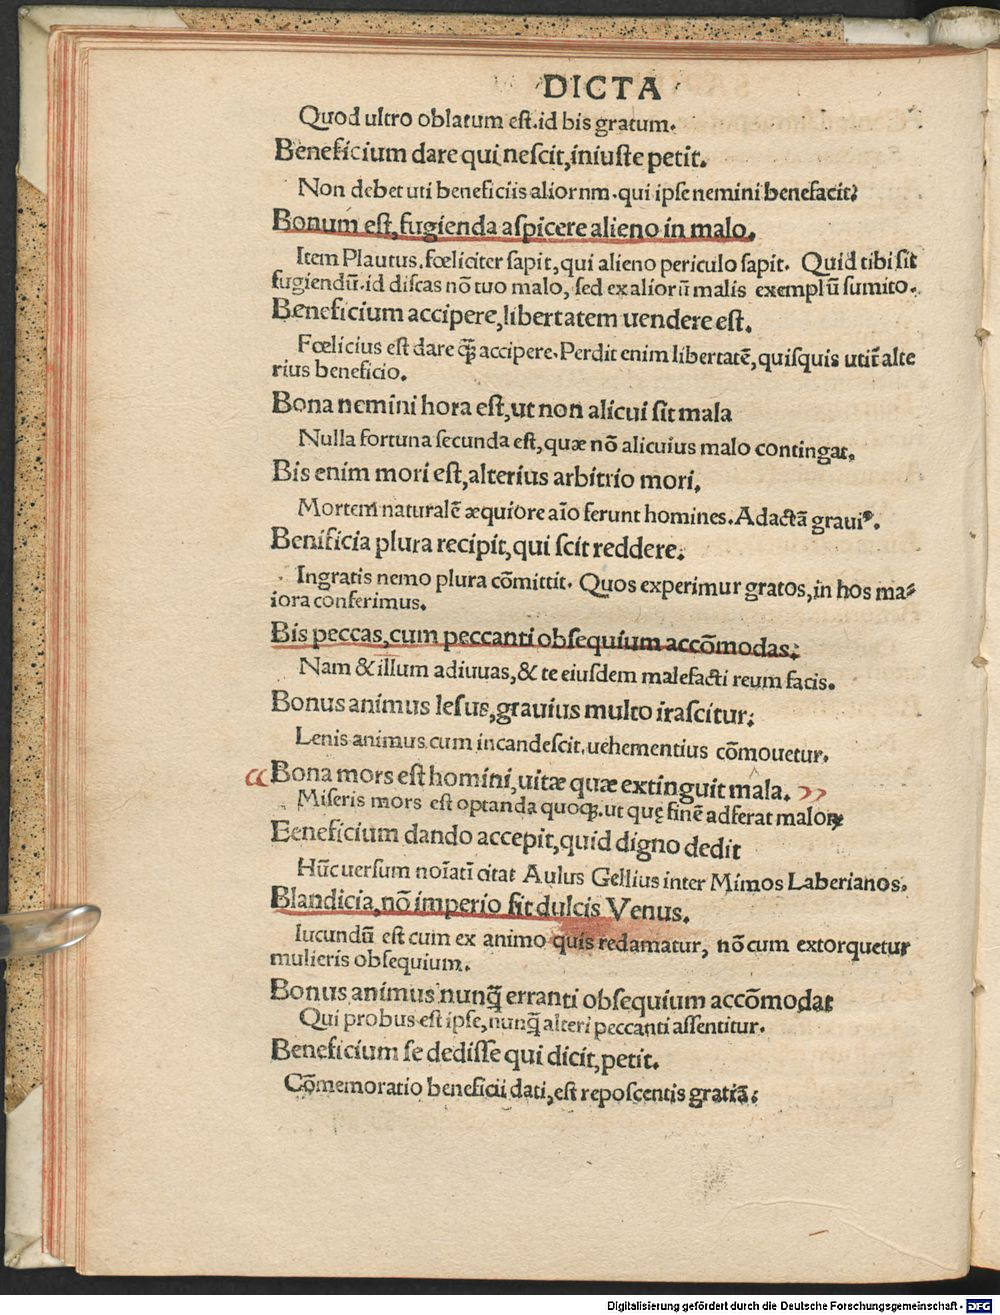 DICTA
Quod ultro oblatum eſt.id bis gratum.
Beneficium dare qui neſcit,iniuſte petit.
Non debet uti beneficiis aliornm.qui ipſe nemini benefacit?
Bonum eſt,fugienda aſpicere alieno in malo.
Item Plautus.fœliciter ſapit,qui alieno periculo ſapit. Quid tibi ſit
fugiendū.id diſcas nō tuo malo, ſed ex aliorū malis exemplū ſumito.
Beneficium accipere,libertatem uendere eſt.
Fœlicius eſt dare ꝙ̃ accipere.Perdit enim libertatē,quiſquis utit̃ alte
rius beneficio.
Bona nemini hora eſt,ut non alicui ſit mala
Nulla fortuna ſecunda eſt,quæ nō alicuius malo contingat.
Bis enim mori eſt,alterius arbitrio mori.
Mortem naturalē æquiore aīo ferunt homines.Adactā graui⁹.
Benificia plura recipit,qui ſcit reddere.
Ingratis nemo plura cōmittit. Quos experimur gratos,in hos ma⸗
iora conferimus.
Bis peccas,cum peccanti obſequium accōmodas.
Nam & illum adiuuas,& te eiuſdem malefacti reum facis.
Bonus animus leſus,grauius multo iraſcitur.
Lenis animus cum incandeſcit,uehementius cōmouetur.
Bona mors eſt homini,uitæ quæ extinguit mala.
Miſeris mors eſt optanda quoqꝫ.ut quę finē adferat maloꝝ
Beneficium dando accepit,quid digno dedit
Hūc uerſum noīatī citat Aulus Gellius inter Mimos Laberianos.
Blandicia,nō imperio fit dulcis Venus.
Iucundū eſt cum ex animo quis redamatur, nō cum extorquetur
mulieris obſequium.
Bonus animus nunꝙ̃ erranti obſequium accōmodat
Qui probus eſt ipſe,nunꝙ̃ alteri peccanti aſſentitur.
Beneficium ſe dediſſe qui dicit,petit.
Cōmemoratio beneficii dati,eſt repoſcentis gratiā.
Digitalisierung gefördert durch die Deutsche Forschungsgemeinschaft - DFG